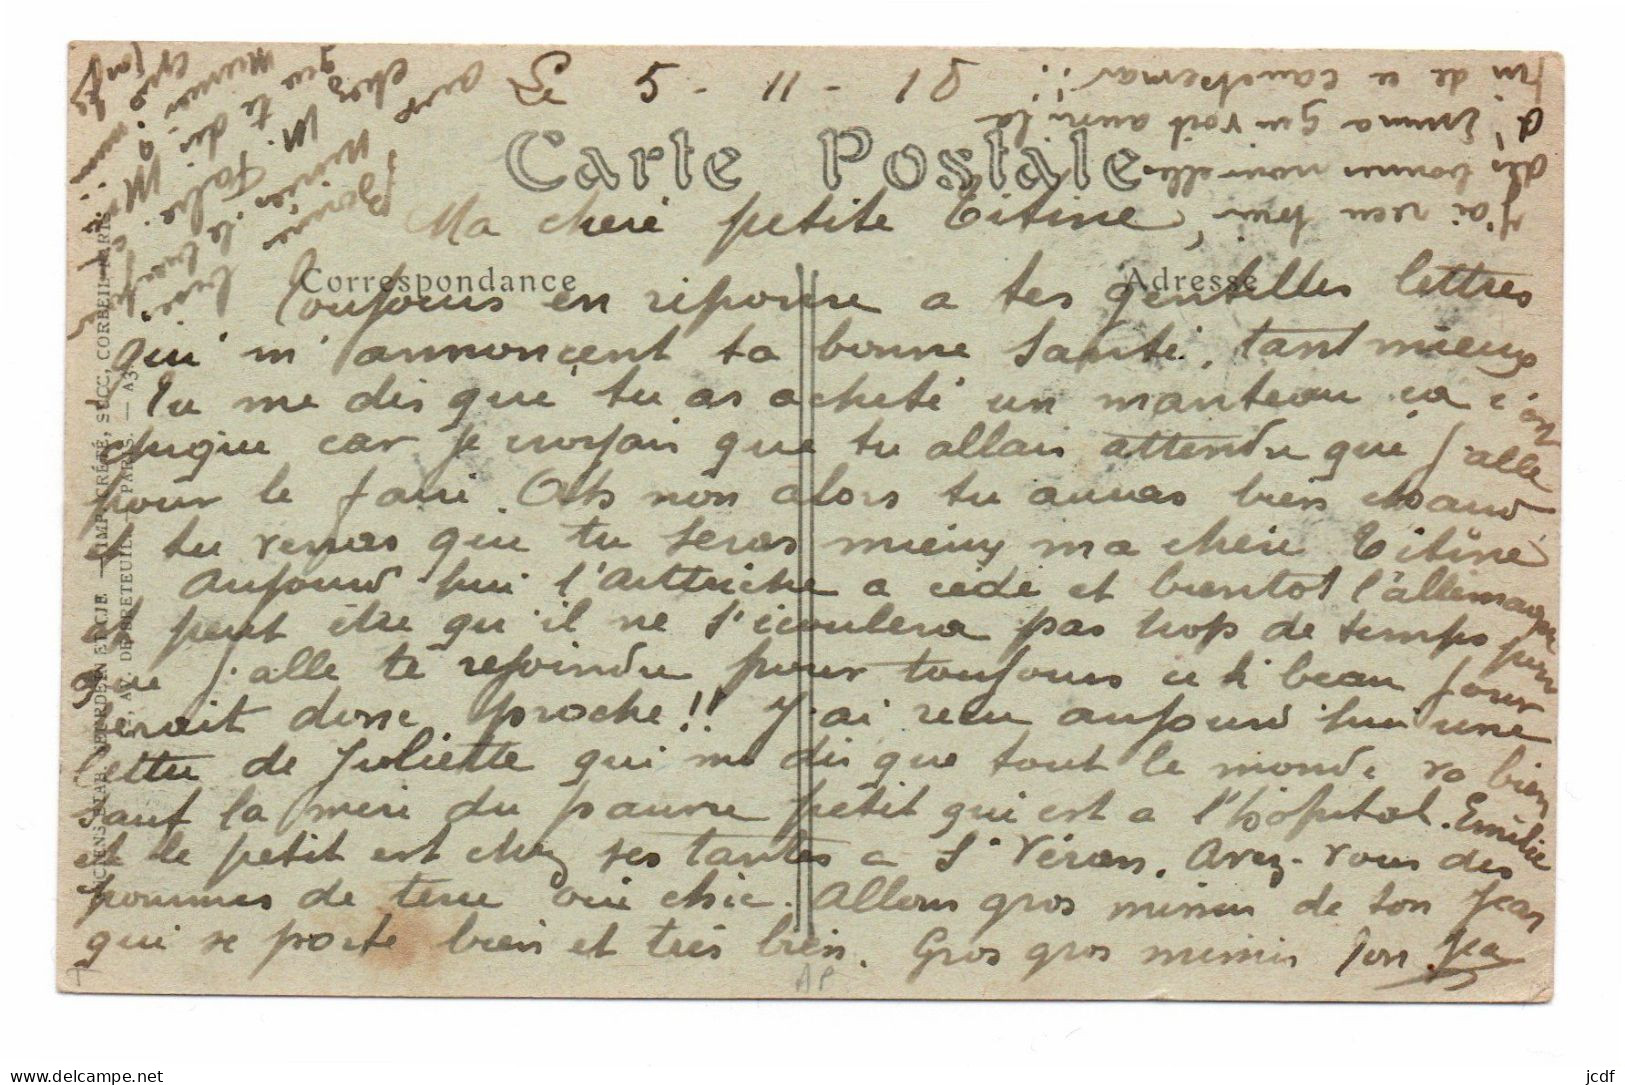 Le 5 - 11 - 18
Carte Postale
Ma cheré petite Titine,
Correspondance
Adresse
Toujours en réponse a tes gentilles lettres
qui m'annoncent ta bonne santé, tant mieux
Tu me dis que tu as acheté un manteau ca
car je croyais que tu allais attendre que j'alle
pour le faire. Oh non alors tu auras bien chaud
et tu verras que tu seras mieux ma chérie Titine
Aujourd'hui l'Autriche a cédé et bientot l'allemagne
et peut être qu'il ne s'écoulera pas trop de temps pour
que j'alle te rejoindre pour toujours ce beau jour
serait donc proche!! J'ai recu aujourd'hui une
lettre de Juliette qui me dis que tout le monde va bien
sauf la mère du pauvre petit qui est a l'hopital. Emilie
et le petit est chez ses tantes a St Véran. Avez-vous des
pommes de terre oui chic. Allons gros mimis de ton Jean
qui se porte bien et très bien. Gros gros mimis Ton Jean
J'ai recu hier,
des bonnes nouvelles
d'Emma qui voit aussi la
fin de ce cauchemar!!
ANCIENS ETAB. NEURDEIN ET CIE. — IMP. CRÉTÉ, SUCC. CORBEIL-PARIS.
AV. DE BRETEUIL, PARIS. — A3.
AP
delcampe.net
jcdf